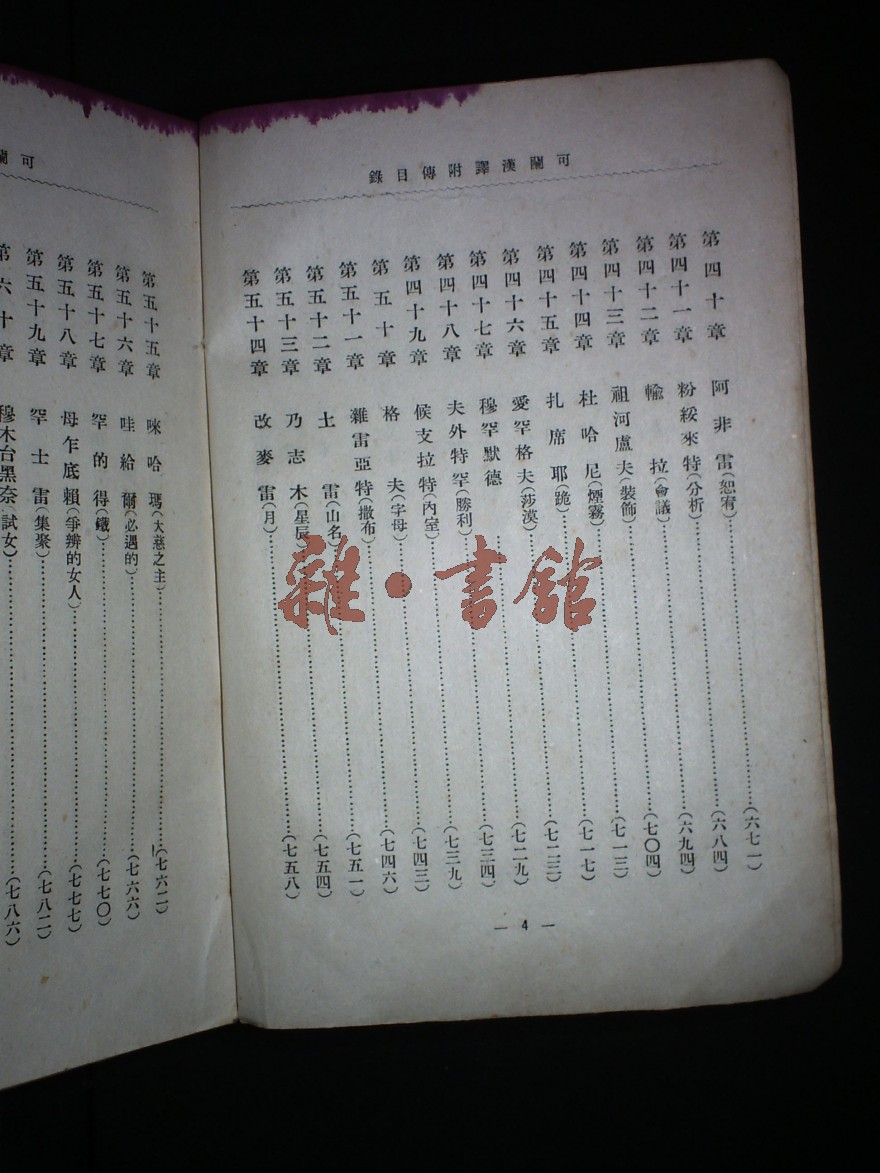 可闌漢譯附傳目錄
第四十章 阿非雷(恕宥)……(六七一)
第四十一章 粉綏來特(分析)……(六八四)
第四十二章 輸拉(會議)……(六九四)
第四十三章 祖河盧夫(裝飾)……(七〇四)
第四十四章 杜哈尼(煙霧)……(七一三)
第四十五章 扎席耶(跪)……(七一七)
第四十六章 愛罕格夫(莎漠)……(七二三)
第四十七章 穆罕默德……(七二九)
第四十八章 夫外特罕(勝利)……(七三四)
第四十九章 候支拉特(內室)……(七三九)
第五十章 格夫(字母)……(七四三)
第五十一章 雜雷亞特(撒布)……(七四六)
第五十二章 土雷(山名)……(七五一)
第五十三章 乃志木(星辰)……(七五四)
第五十四章 改麥雷(月)……(七五八)
— 4 —
可闌
第五十五章 咪哈瑪(大慈之主)……(七六二)
第五十六章 哇給爾(必遇的)……(七六六)
第五十七章 罕的得(鐵)……(七七〇)
第五十八章 母乍底賴(爭辨的女人)……(七七七)
第五十九章 罕士雷(集聚)……(七八二)
第六十章 穆木台黑奈(試女)……(七八六)
雜·書館